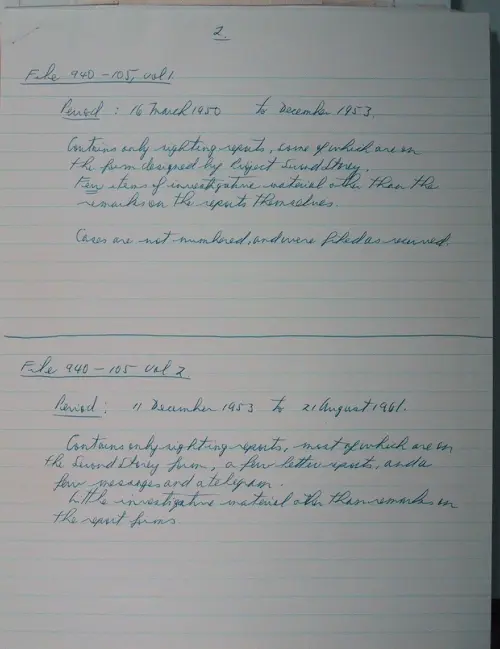 2.
File 940-105, vol 1.
Period : 16 March 1950 to December 1953,
Contains only sighting reports, some of which are on
the form designed by Project Second Storey.
Few items of investigative material other than the
remarks on the reports themselves.
Cases are not numbered, and were filed as received.
File 940-105 vol 2
Period : 11 December 1953 to 21 August 1961.
Contains only sighting reports, most of which are on
the Second Storey form, a few letter reports, and a
few messages and a telegram.
Little investigative material other than remarks on
the report forms